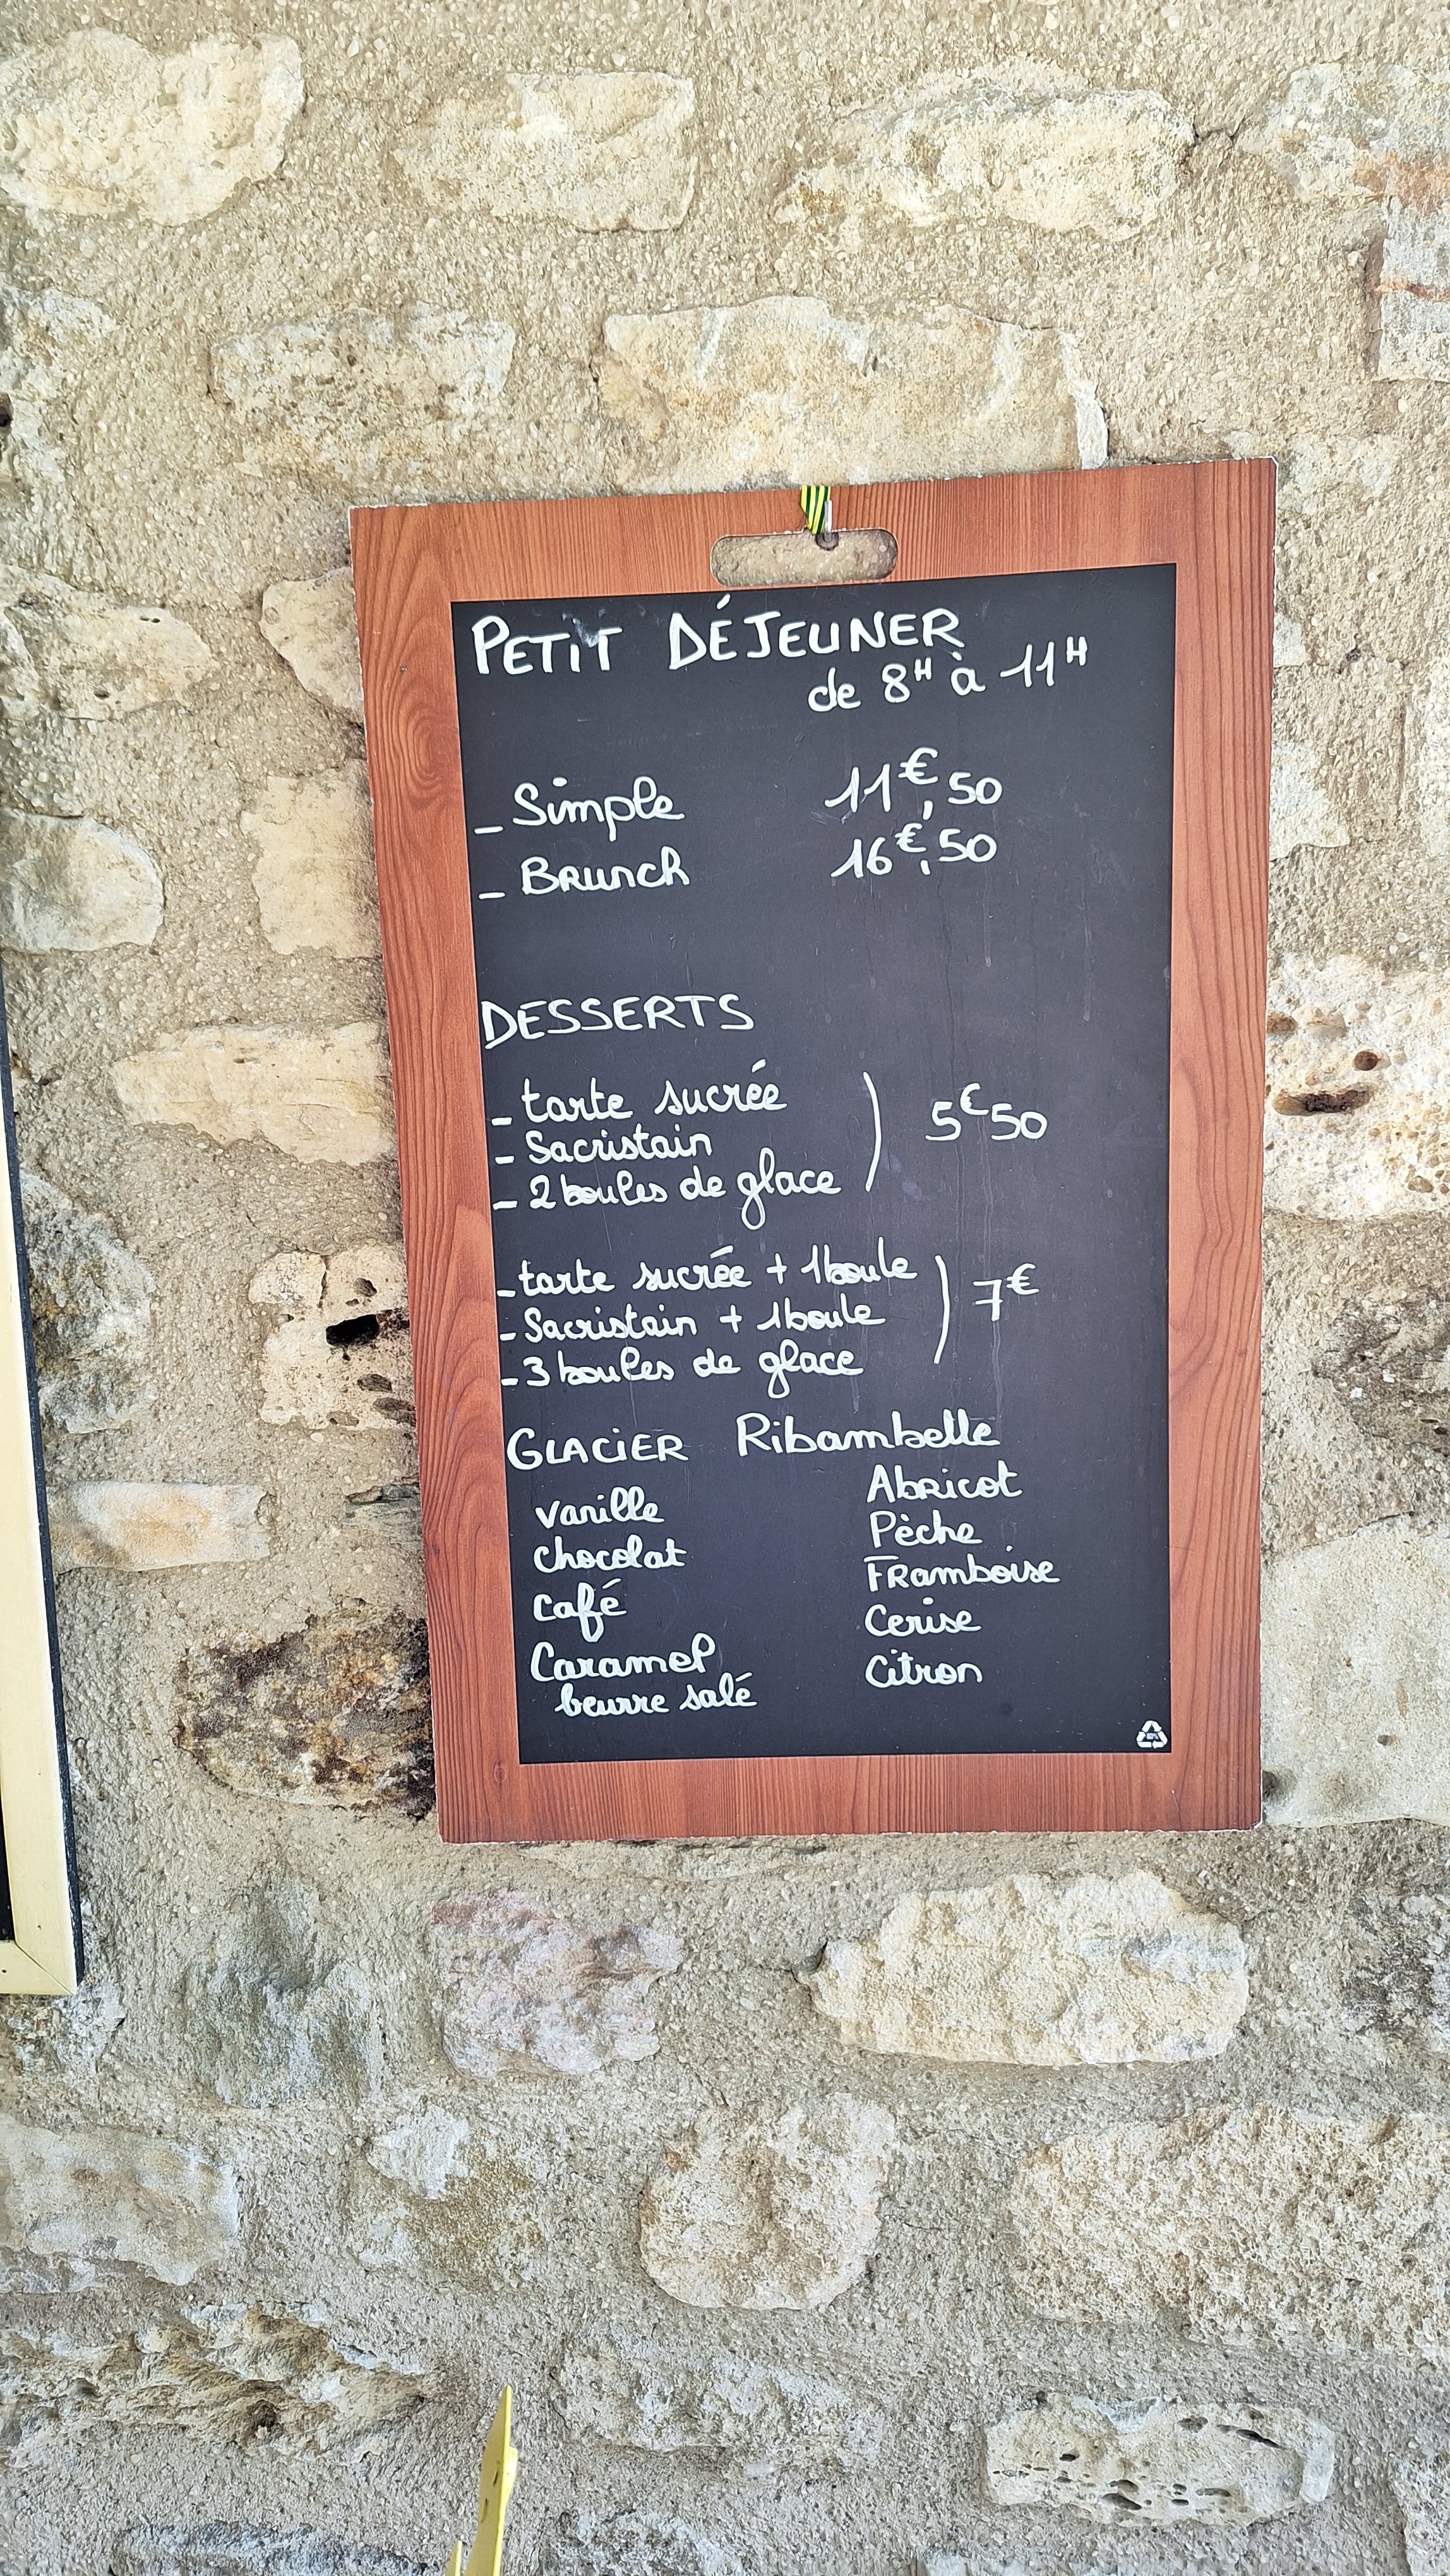 PETIT DÉJEUNER
de 8H à 11H
- Simple 11€,50
- Brunch 16€,50
DESSERTS
- tarte sucrée
- Sacristain
- 2 boules de glace
5€50
- tarte sucrée + 1 boule
- Sacristain + 1 boule
- 3 boules de glace
7€
GLACIER Ribambelle
vanille
chocolat
café
Caramel
beurre salé
Abricot
Pèche
Framboise
Cerise
Citron